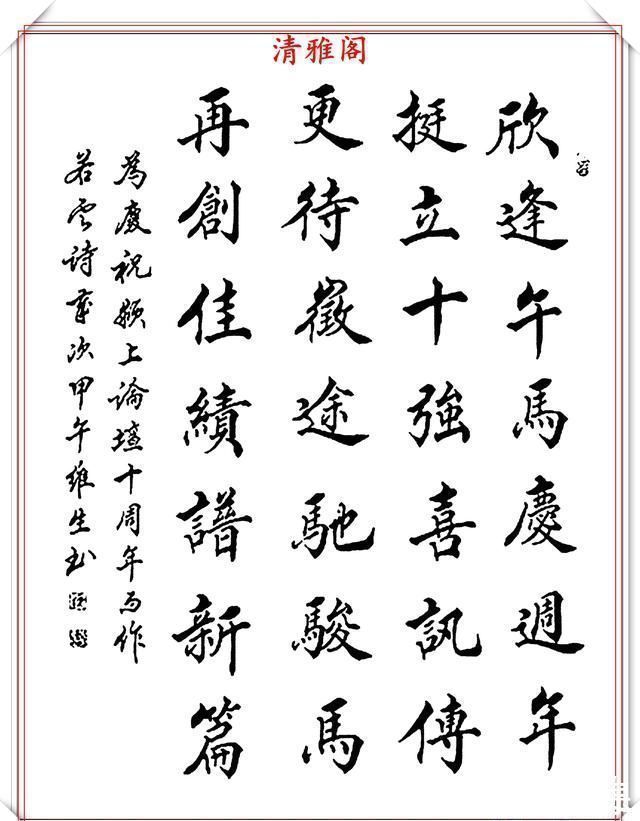 清雅阁
欣逢午馬慶週年
挺立十強喜訊傳
更待徵途馳駿馬
再創佳績譜新篇
為慶祝頻上論壇十周年而作
若雲詩歲次甲午維生书